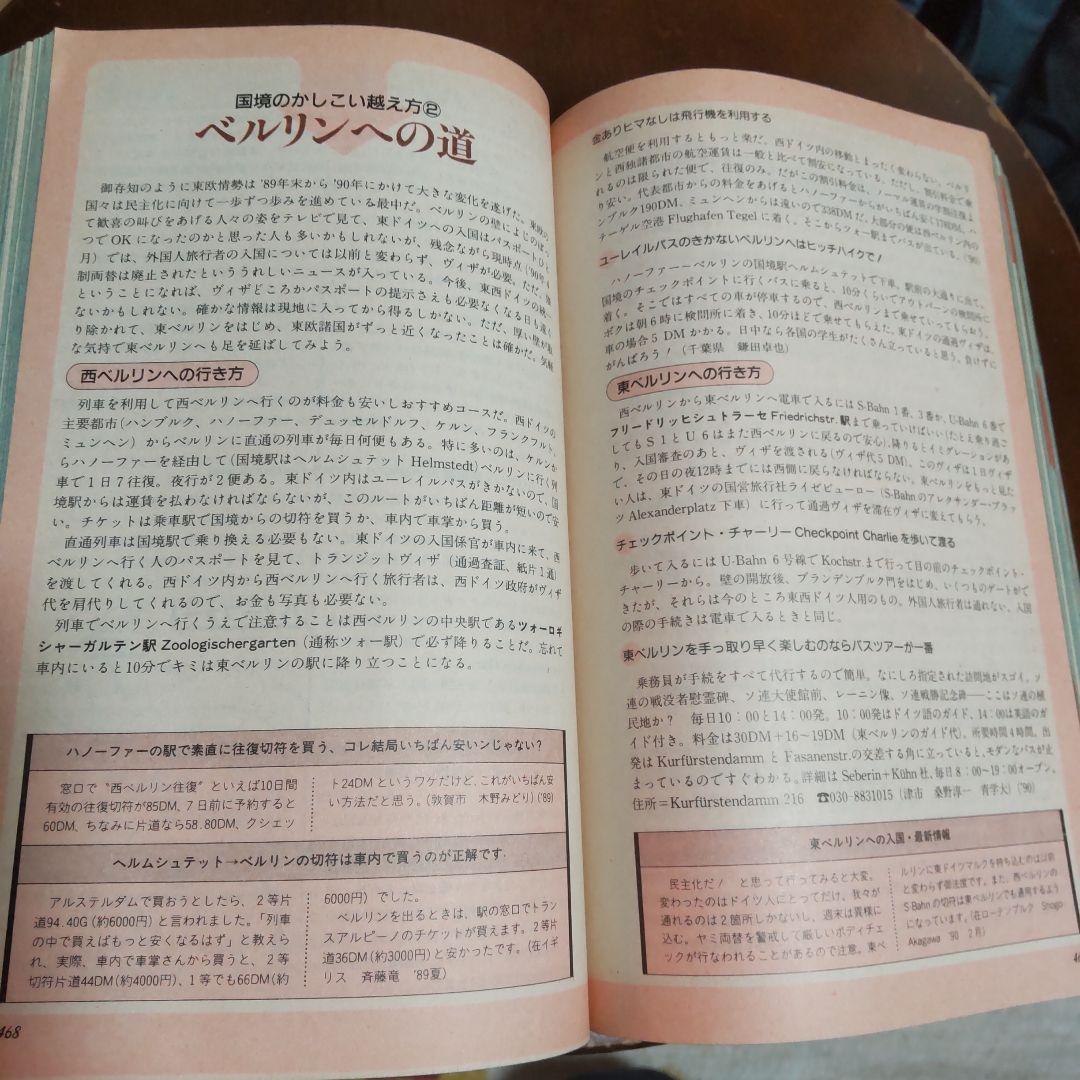 国境のかしこい越え方②
ベルリンへの道
御存知のように東欧情勢は'89年末から'90年にかけて大きな変化を遂げた。東欧の
国々は民主化に向けて一歩ずつ歩みを進めている最中だ。ベルリンの壁によじのぼっ
て歓喜の叫びをあげる人々の姿をテレビで見て、東ドイツへの入国はパスポートひと
つでOKになったのかと思った人も多いかもしれないが、残念ながら現時点('90年6
月)では、外国人旅行者の入国については以前と変わらず、ヴィザが必要。ただ、強
制両替は廃止されたといううれしいニュースが入っている。今後、東西ドイツの統一
ということになれば、ヴィザどころかパスポートの提示さえも必要なくなる日も遠く
ないかもしれない。確かな情報は現地に入ってから得るしかない。ただ、厚い壁が取
り除かれて、東ベルリンをはじめ、東欧諸国がずっと近くなったことは確かだ。気軽
な気持で東ベルリンへも足を延ばしてみよう。
西ベルリンへの行き方
列車を利用して西ベルリンへ行くのが料金も安いしおすすめコースだ。西ドイツの
主要都市(ハンブルク、ハノーファー、デュッセルドルフ、ケルン、フランクフルト、
ミュンヘン)からベルリンに直通の列車が毎日何便もある。特に多いのは、ケルンか
らハノーファーを経由して(国境駅はヘルムシュテット Helmstedt)ベルリンに行く列
車で1日7往復。夜行が2便ある。東ドイツ内はユーレイルパスがきかないので、国
境駅からは運賃を払わなければならないが、このルートがいちばん距離が短いので安
い。チケットは乗車駅で国境からの切符を買うか、車内で車掌から買う。
直通列車は国境駅で乗り換える必要もない。東ドイツの入国係官が車内に来て、西
ベルリンへ行く人のパスポートを見て、トランジットヴィザ(通過査証、紙片1通)
を渡してくれる。西ドイツ内から西ベルリンへ行く旅行者は、西ドイツ政府がヴィザ
代を肩代りしてくれるので、お金も写真も必要ない。
列車でベルリンへ行くうえで注意することは西ベルリンの中央駅であるツォーロギ
シャーガルテン駅 Zoologischergarten(通称ツォー駅)で必ず降りることだ。忘れて
車内にいると10分でキミは東ベルリンの駅に降り立つことになる。
ハノーファーの駅で素直に往復切符を買う、コレ結局いちばん安いンじゃない?
窓口で〝西ベルリン往復〟といえば10日間
有効の往復切符が85DM、7日前に予約すると
60DM、ちなみに片道なら58.80DM、クシェッ
ト24DMというワケだけど、これがいちばん安
い方法だと思う。(敦賀市 木野みどり)('89)
ヘルムシュテット→ベルリンの切符は車内で買うのが正解です
アルステルダムで買おうとしたら、2等片
道94.40G(約6000円)と言われました。「列車
の中で買えばもっと安くなるはず」と教えら
れ、実際、車内で車掌さんから買うと、2等
切符片道44DM(約4000円)、1等でも66DM(約
6000円)でした。
ベルリンを出るときは、駅の窓口でトラン
スアルピーノのチケットが買えます。2等片
道36DM(約3000円)と安かったです。(在イギ
リス 斉藤竜 '89夏)
468
金ありヒマなしは飛行機を利用する
航空便を利用するともっと楽だ。西ドイツ内の移動とまったく変わらない。ベルリ
ンと西独諸都市の航空運賃は一般と比べて割安になっている。ただし、割引料金で乗
れるのは限られた便で、往復のみ。だがこの割引料金は、ノーマル運賃の半額往復よ
り安い。代表都市からの料金をあげるとハノーファーからがいちばん安く178DM、ハ
ンブルク190DM、ミュンヘンからは遠いので338DMだ。大部分の便は西ベルリン内の
テーゲル空港 Flughafen Tegel に着く。そこからツォー駅までバスが出ている。('90)
ユーレイルパスのきかないベルリンへはヒッチハイクで!
ハノーファー−ベルリンの国境駅ヘルムシュテットで下車。駅前の大通りに出て、
国境のチェックポイントに行くバスに乗ると、10分くらいでアウトバーンの検問所に
着く。そこではすべての車が停車するので、西ベルリンまで乗せていってもらおう。
ボクは朝6時に検問所に着き、10分ほどで乗せてもらえた。東ドイツの通過ヴィザは、
車の場合5DMかかる。日中なら各国の学生がたくさん立っていると思う。負けずに
がんばろう!(千葉県 鎌田卓也)
東ベルリンへの行き方
西ベルリンから東ベルリンへ電車で入るにはS-Bahn 1番、3番か、U-Bahn 6番で
フリードリッヒシュトラーセ Friedrichstr. 駅まで乗っていけばいい(たとえ乗り過ご
してもS1とU6はまた西ベルリンに戻るので安心)。降りるとイミグレーションがあ
り、入国審査のあと、ヴィザを渡される(ヴィザ代5DM)。このヴィザは1日ヴィザ
で、その日の夜12時までには西側に戻らなければならない。東ベルリンをもっと見た
い人は、東ドイツの国営旅行社ライゼビューロー(S-Bahnのアレクサンダー・プラッ
ツ Alexanderplatz 下車)に行って通過ヴィザを滞在ヴィザに変えてもらう。
チェックポイント・チャーリー Checkpoint Charlie を歩いて渡る
歩いて入るにはU-Bahn 6号線でKochstr.まで行って目の前のチェックポイント・
チャーリーから。壁の開放後、ブランデンブルク門をはじめ、いくつものゲートがで
きたが、それらは今のところ東西ドイツ人用のもの。外国人旅行者は通れない。入国
の際の手続きは電車で入るときと同じ。
東ベルリンを手っ取り早く楽しむのならバスツアーが一番
乗務員が手続をすべて代行するので簡単。なにしろ指定された訪問地がスゴイ。ソ
連の戦没者慰霊碑、ソ連大使館前、レーニン像、ソ連戦勝記念碑——ここはソ連の植
民地か? 毎日10:00と14:00発。10:00発はドイツ語のガイド、14:00は英語のガ
イド付き。料金は30DM+16〜19DM(東ベルリンのガイド代)。所要時間4時間。出
発はKurfürstendammとFasanenstr.の交差する角に立っていると、モダンなバスが止
まっているのですぐわかる。詳細はSeberin+Kühn社、毎日8:00〜19:00オープン。
住所=Kurfürstendamm 216 ☎030-8831015(津市 桑野淳一 青学大)('90)
東ベルリンへの入国・最新情報
民主化だ! と思って行ってみると大変。
変わったのはドイツ人にとってだけ、我々が
通れるのは2箇所しかないし、週末は異様に
込む。ヤミ両替を警戒して厳しいボディチェ
ックが行なわれることがあるので注意。東ベ
ルリンに東ドイツマルクを持ち込むのは以前
と変わらず御法度です。また、西ベルリンの
S Bahnの切符は東ベルリンでも通用するよう
になっています。(在ローテンブルク Shogo
Akagawa '90 2月)